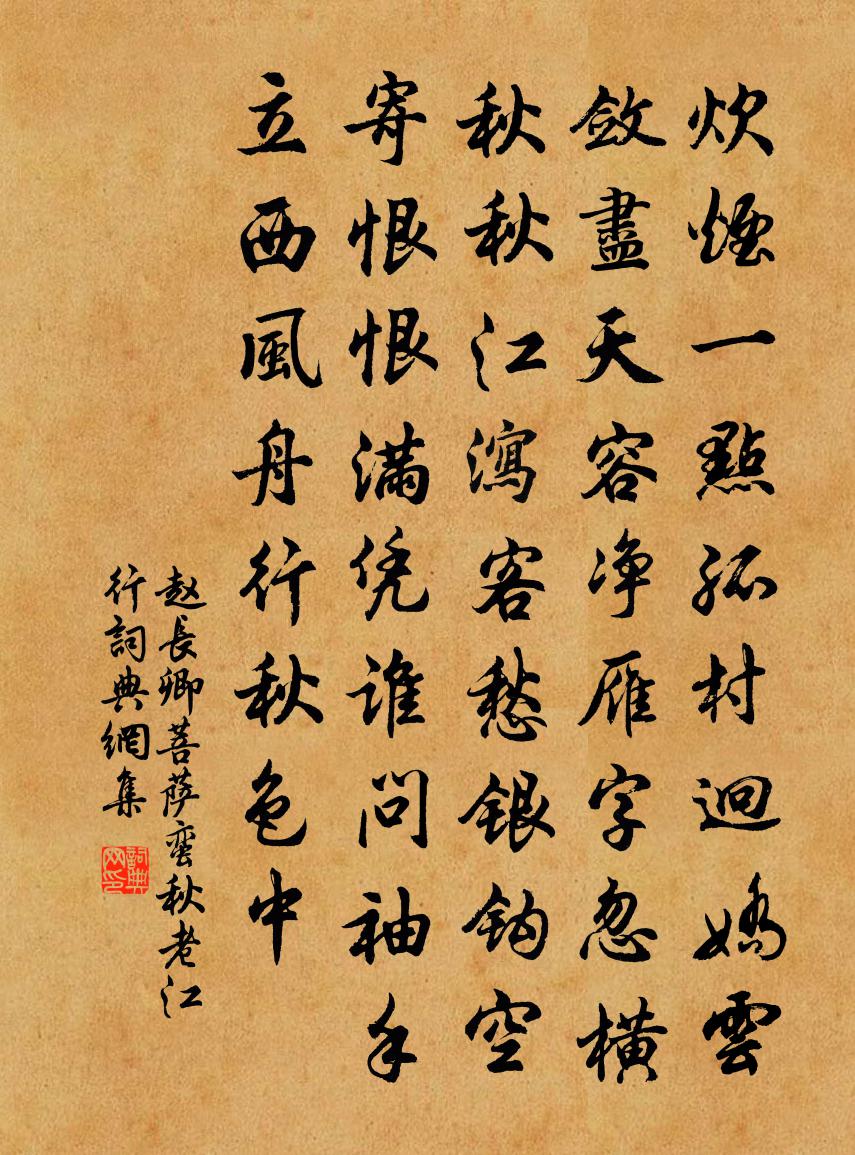 炊煙一點孤村迥嬌雲
斂盡天容净雁字忽橫
秋秋江瀉客愁銀鈎空
寄恨恨滿凭誰問袖手
立西風舟行秋色中
赵長卿菩萨蛮秋老江
行詞典網集
詞典网印